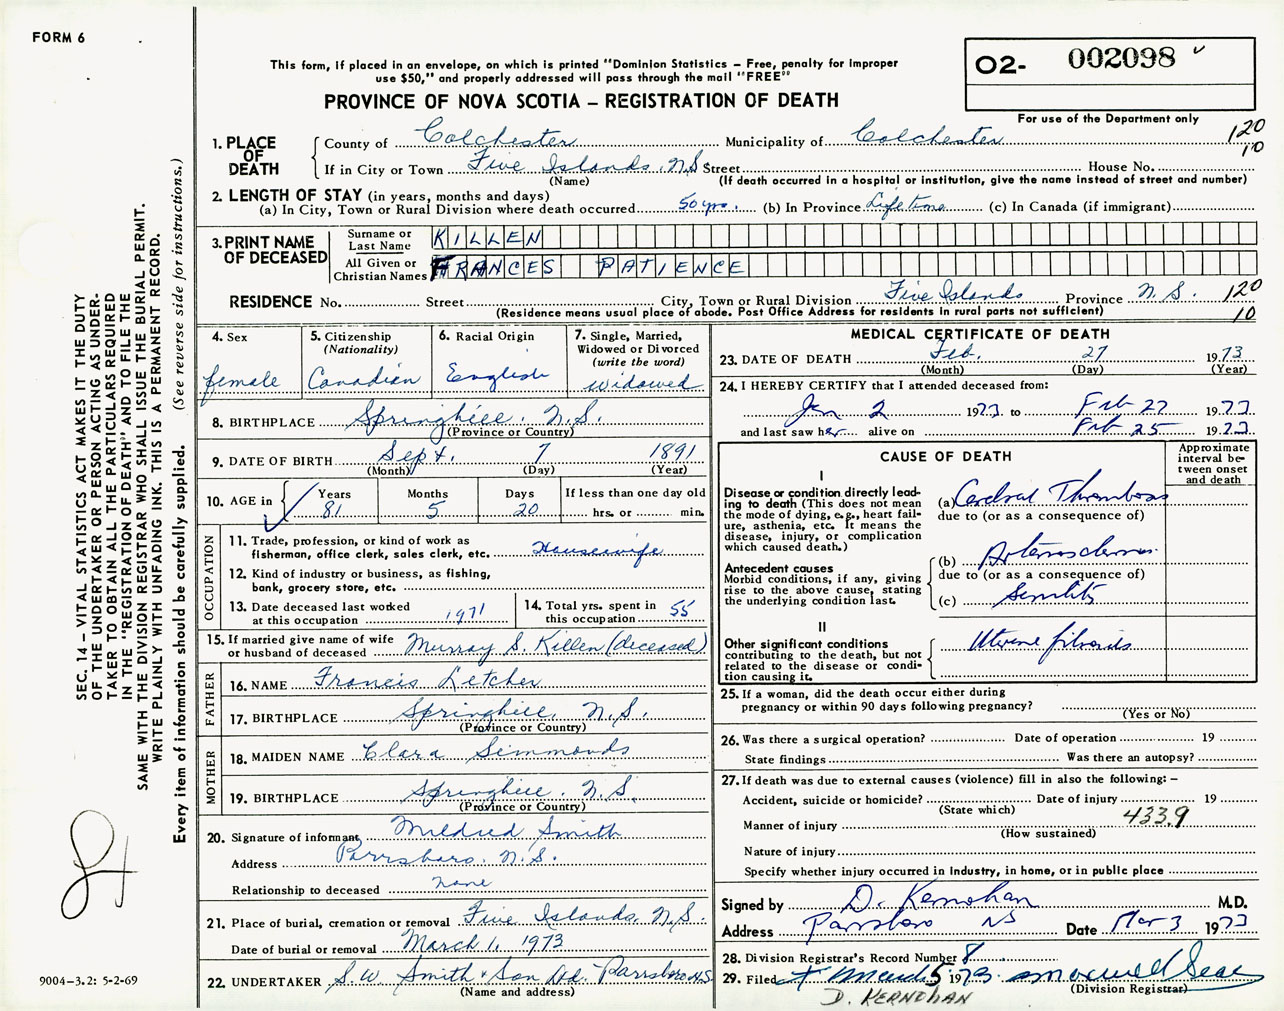 FORM 6
This form, if placed in an envelope, on which is printed "Dominion Statistics – Free, penalty for improper
use $50," and properly addressed will pass through the mail "FREE"
PROVINCE OF NOVA SCOTIA – REGISTRATION OF DEATH
O2- 002098
For use of the Department only
120
10
1. PLACE OF DEATH
County of Colchester Municipality of Colchester
If in City or Town Five Islands, N.S Street House No.
(Name) (If death occurred in a hospital or institution, give the name instead of street and number)
2. LENGTH OF STAY (in years, months and days)
(a) In City, Town or Rural Division where death occurred 50 yrs. (b) In Province Life time (c) In Canada (if immigrant)
3. PRINT NAME OF DECEASED
Surname or Last Name KILLEN
All Given or Christian Names FRANCES PATIENCE
RESIDENCE No. Street City, Town or Rural Division Five Islands Province N.S. 120
(Residence means usual place of abode. Post Office Address for residents in rural parts not sufficient) 10
4. Sex
female
5. Citizenship
(Nationality)
Canadian
6. Racial Origin
English
7. Single, Married,
Widowed or Divorced
(write the word)
widowed
8. BIRTHPLACE Springhill, N.S.
(Province or Country)
9. DATE OF BIRTH Sept. 7 1891
(Month) (Day) (Year)
10. AGE in
Years Months Days If less than one day old
81 5 20 hrs. or min.
OCCUPATION
11. Trade, profession, or kind of work as
fisherman, office clerk, sales clerk, etc. Housewife
12. Kind of industry or business, as fishing,
bank, grocery store, etc.
13. Date deceased last worked
at this occupation 1971
14. Total yrs. spent in
this occupation 55
15. If married give name of wife
or husband of deceased Murray S. Killen (deceased)
FATHER
16. NAME Francis Letcher
17. BIRTHPLACE Springhill, N.S.
(Province or Country)
MOTHER
18. MAIDEN NAME Clara Simmonds
19. BIRTHPLACE Springhill, N.S.
(Province or Country)
20. Signature of informant Mildred Smith
Address Parrsboro, N.S.
Relationship to deceased none
21. Place of burial, cremation or removal Five Islands, N.S.
Date of burial or removal March 1, 1973
22. UNDERTAKER S.W. Smith & Son Ltd. Parrsboro N.S.
(Name and address)
MEDICAL CERTIFICATE OF DEATH
23. DATE OF DEATH Feb. 27 1973
(Month) (Day) (Year)
24. I HEREBY CERTIFY that I attended deceased from:
Jan 2 1973 to Feb 27 1973
and last saw her alive on Feb 25 1973
CAUSE OF DEATH
Approximate
interval be-
tween onset
and death
I
Disease or condition directly lead-
ing to death (This does not mean
the mode of dying, e.g., heart fail-
ure, asthenia, etc. It means the
disease, injury, or complication
which caused death.)
(a) Cerebral Thrombosis
due to (or as a consequence of)
Antecedent causes
Morbid conditions, if any, giving
rise to the above cause, stating
the underlying condition last.
(b) Arteriosclerosis
due to (or as a consequence of)
(c) Senility
II
Other significant conditions
contributing to the death, but not
related to the disease or condi-
tion causing it.
Uterine fibroids
25. If a woman, did the death occur either during
pregnancy or within 90 days following pregnancy?
(Yes or No)
26. Was there a surgical operation? Date of operation 19
State findings Was there an autopsy?
27. If death was due to external causes (violence) fill in also the following: –
Accident, suicide or homicide? Date of injury 19
(State which)
Manner of injury 433.9
(How sustained)
Nature of injury
Specify whether injury occurred in industry, in home, or in public place
Signed by D. Kernohan M.D.
Address Parrsboro NS Date Mar 3 1973
28. Division Registrar's Record Number 8
29. Filed March 5 1973
(Division Registrar)
D. KERNOHAN
SEC. 14 – VITAL STATISTICS ACT MAKES IT THE DUTY
OF THE UNDERTAKER OR PERSON ACTING AS UNDER-
TAKER TO OBTAIN ALL THE PARTICULARS REQUIRED
IN THE "REGISTRATION OF DEATH" AND TO FILE THE
SAME WITH THE DIVISION REGISTRAR WHO SHALL ISSUE THE BURIAL PERMIT.
WRITE PLAINLY WITH UNFADING INK. THIS IS A PERMANENT RECORD.
Every item of information should be carefully supplied. (See reverse side for instructions.)
9004–3.2: 5-2-69